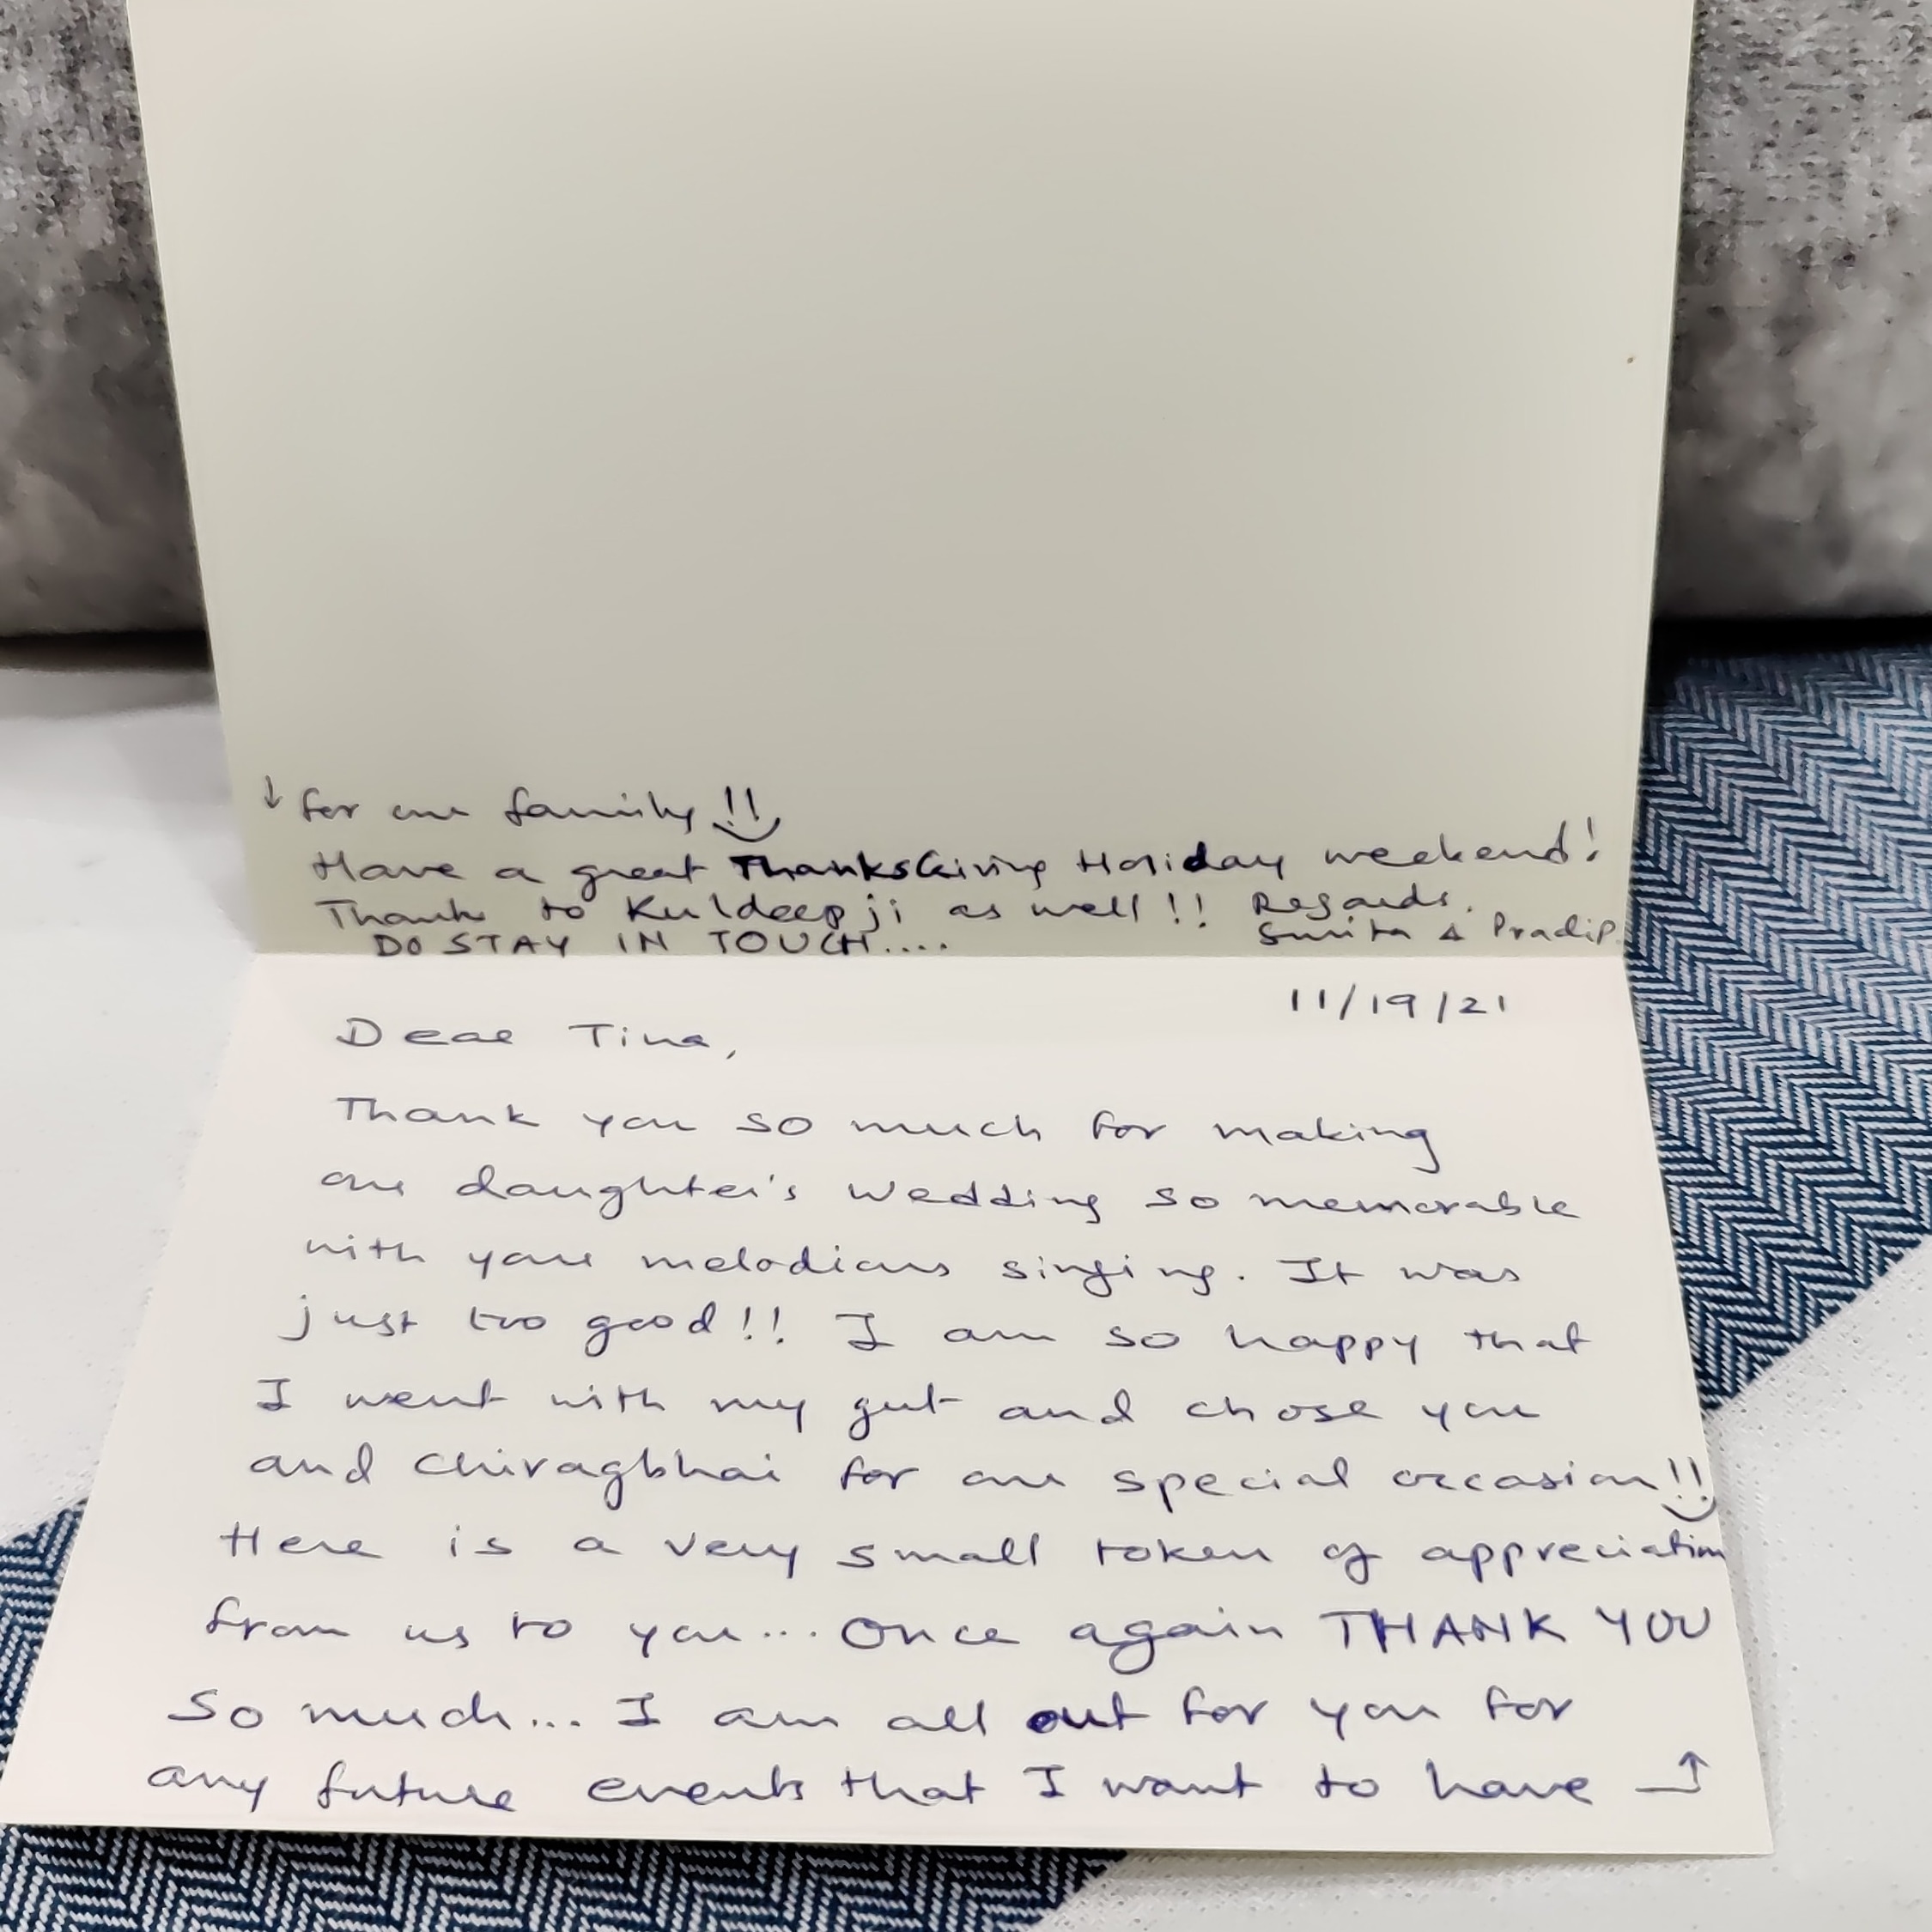 11/19/21
Dear Tina,
Thank you so much for making
our daughter's wedding so memorable
with your melodious singing. It was
just too good!! I am so happy that
I went with my gut and chose you
and Chiragbhai for our special occasion!!
Here is a very small token of appreciation
from us to you... Once again THANK YOU
so much... I am all out for you for
any future events that I want to have →
↓ for our family!!
Have a great ThanksGiving Holiday weekend!
Thanks to Kuldeepji as well!! Regards.
DO STAY IN TOUCH.... Smita & Pradip.